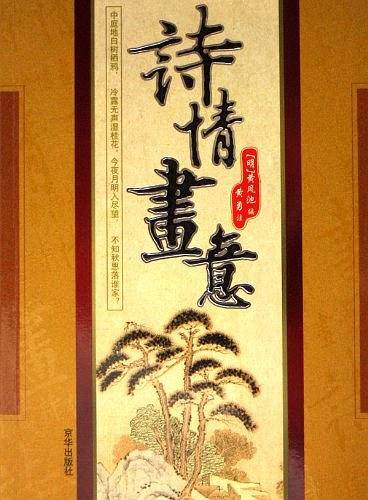 詩情畫意
[明]黄凤池 编
黄勇 注
中庭地白树栖鸦，冷露无声湿桂花。今夜月明人尽望，不知秋思落谁家？
京华出版社